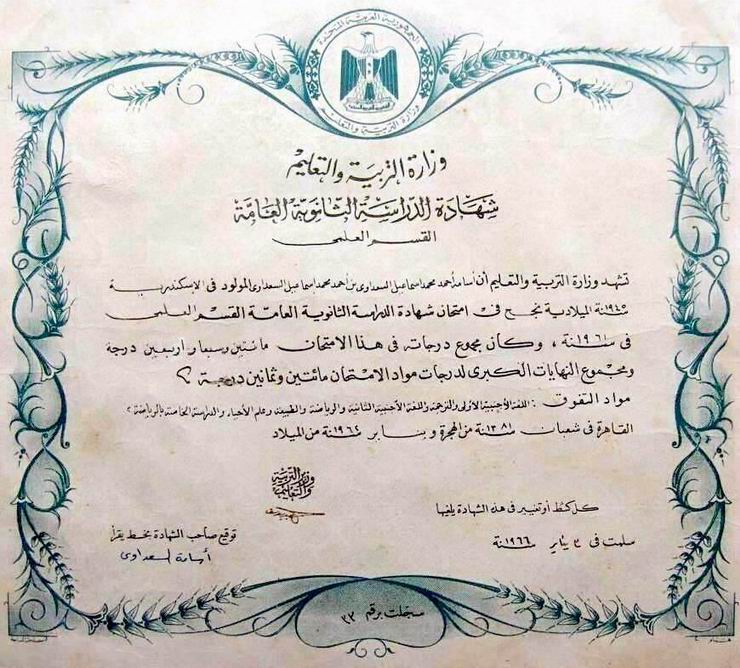 الجمهورية العربية المتحدة
وزارة التربية والتعليم
وزارة التربية والتعليم
شهادة الدراسة الثانوية العامة
القسم العلمى
تشهد وزارة التربية والتعليم أن أسامه أحمد محمد إسماعيل السعداوى بن أحمد محمد إسماعيل السعداوى المولود فى الإسكندرية
سنة ١٩٤٥ الميلادية نجح فى امتحان شهادة الدراسة الثانوية العامة القسم العلمى
فى سنة ١٩٦١ ، وكان مجموع درجاته فى هذا الامتحان مائتين وسبعا وأربعين درجة
ومجموع النهايات الكبرى لدرجات مواد الامتحان مائتين وثمانين درجة
مواد التفوق : اللغة الأجنبية الأولى والترجمة واللغة الأجنبية الثانية والرياضة والطبيعة وعلم الأحياء والدراسة الخاصة بالرياضة
القاهرة فى شعبان سنة ١٣٨١ من الهجرة و يناير سنة ١٩٦٢ من الميلاد
وزير التربية
والتعليم
كل كشط أو تغيير فى هذه الشهادة يلغيها
توقيع صاحب الشهادة بخط يقرأ
أسامة السعداوى
سلمت فى ٣ يناير سنة ١٩٦٦
سجلت برقم ٢٣